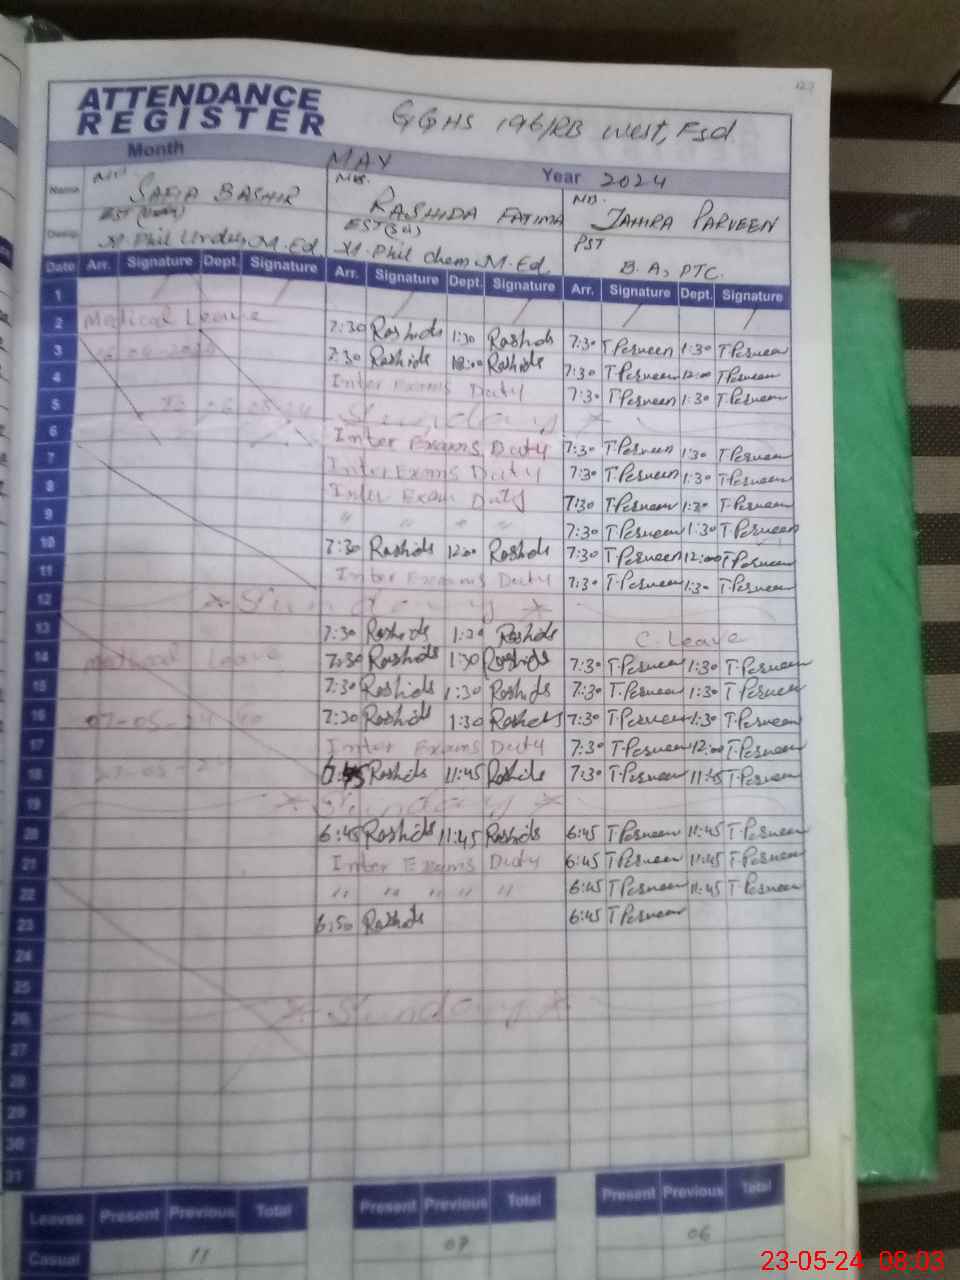 127
ATTENDANCE
REGISTER
GGHS 196/RB West, Fsd.
Month MAY Year 2024
Name SAFIA BASHIR Mrs. RASHIDA FATIMA TAHIRA PARVEEN
Desig. M.Phil Urdu, M.Ed EST M.Phil Chem M.Ed. PST B.A, PTC.
Date Arr. Signature Dept. Signature Arr. Signature Dept. Signature Arr. Signature Dept. Signature
1
2 Medical Leave 7:30 Rashida 1:30 Rashida 7:30 T.Parveen 1:30 T.Parveen
3 7:30 Rashida 12:00 Rashida 7:30 T.Parveen 12:00 T.Parveen
4 Inter Exams Duty 7:30 T.Parveen 1:30 T.Parveen
5 * Sunday *
6 Inter Exams Duty 7:30 T.Parveen 1:30 T.Parveen
7 Inter Exams Duty 7:30 T.Parveen 1:30 T.Parveen
8 Inter Exam Duty 7:30 T.Parveen 1:30 T.Parveen
9 " " " " 7:30 T.Parveen 1:30 T.Parveen
10 7:30 Rashida 12:00 Rashida 7:30 T.Parveen 12:00 T.Parveen
11 Inter Exams Duty 7:30 T.Parveen 1:30 T.Parveen
12 * Sunday *
13 7:30 Rashida 1:30 Rashida C. Leave
14 Medical Leave 7:30 Rashida 1:30 Rashida 7:30 T.Parveen 1:30 T.Parveen
15 7:30 Rashida 1:30 Rashida 7:30 T.Parveen 1:30 T.Parveen
16 07-05-24 to 7:30 Rashida 1:30 Rashida 7:30 T.Parveen 1:30 T.Parveen
17 Inter Exams Duty 7:30 T.Parveen 12:00 T.Parveen
18 27-05-24 Rashida 11:45 Rashida 7:30 T.Parveen 11:45 T.Parveen
19 * Sunday *
20 6:45 Rashida 11:45 Rashida 6:45 T.Parveen 11:45 T.Parveen
21 Inter Exams Duty 6:45 T.Parveen 11:45 T.Parveen
22 " " " " " 6:45 T.Parveen 11:45 T.Parveen
23 6:50 Rashida 6:45 T.Parveen
24
25
26 * Sunday *
27
28
29
30
31
Leaves Present Previous Total Present Previous Total Present Previous Total
Casual 11 07 06
23-05-24 08:03